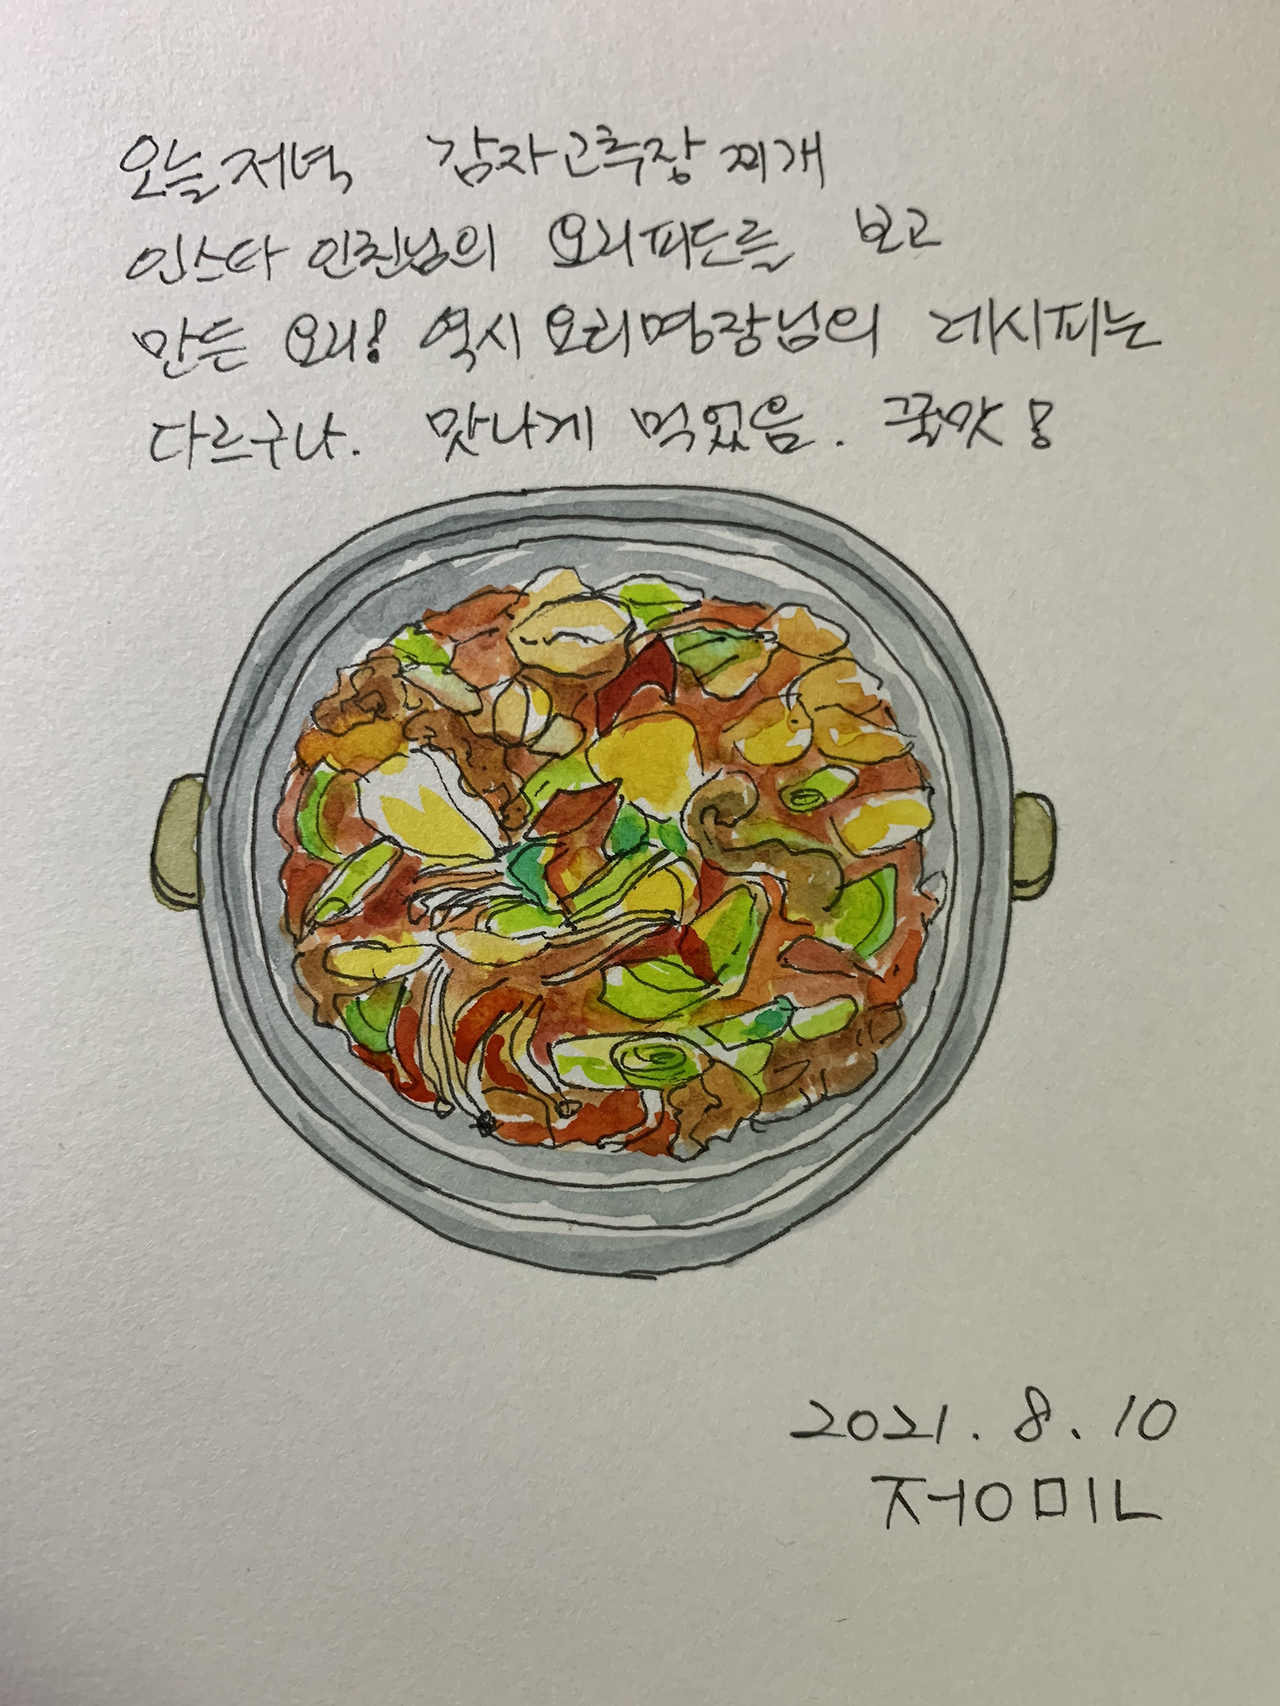 오늘 저녁 감자고추장찌개
인스타 인친님의 요리피드를 보고
만든 요리! 역시 요리명장님의 레시피는
다르구나. 맛나게 먹었음. 꿀맛!
2021. 8. 10
ㅈㅓㅇㅁㅣㄴ